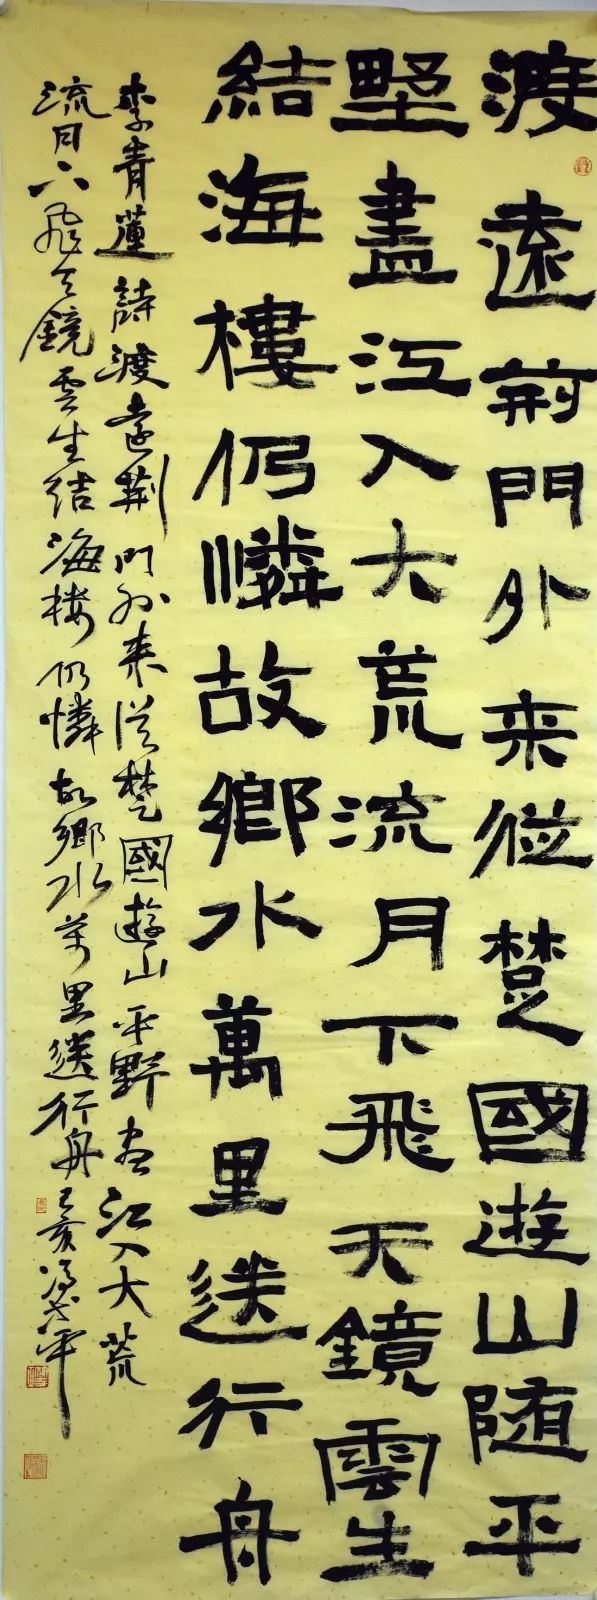 渡遠荆門外来從楚國遊山随平
墅盡江入大荒流月下飛天鏡雲生
結海樓仍憐故鄉水萬里送行舟
李青蓮詩渡遠荆門外来從楚國遊山平野盡江入大荒
流月下飛天鏡雲生結海楼仍憐故鄉水萬里送行舟己亥平